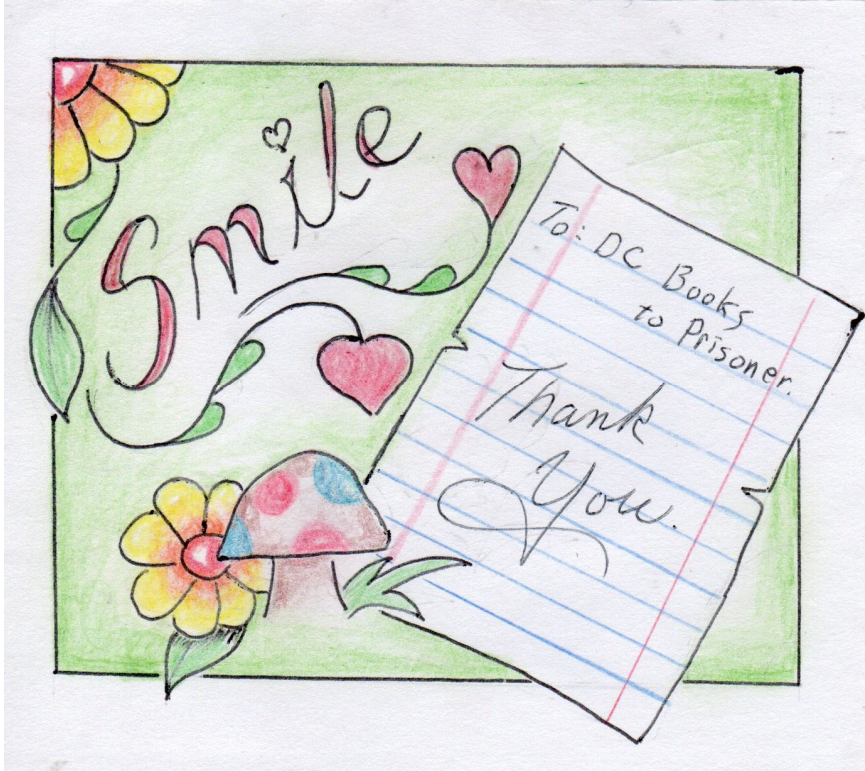 Smile
To: DC Books
to Prisoner.
Thank
You.